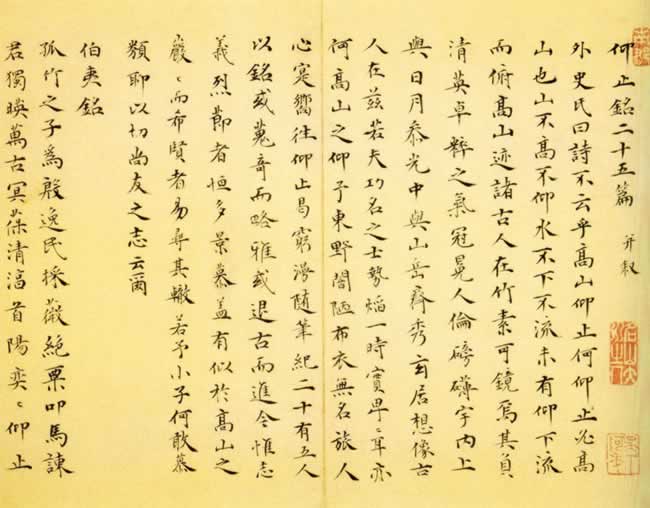 仰止銘二十五篇 并敘
外史氏曰詩不云乎高山仰止何仰止必高
山也山不高不仰水不下不流未有仰下流
而俯高山迹諸古人在竹素可鏡焉其負
清英卓粹之氣冠冕人倫磅礴宇內上
與日月叅光中與山岳齊秀玄居想像古
人在茲若夫功名之士勢焰一時實卑〻耳亦
何高山之仰予東野闇陋布衣無名旅人
心寔嚮往仰止曷窮漫随筆紀二十有五人
以銘或蒐奇而略雅或退古而進今惟志
義烈節者恒多景慕盖有似於高山之
巖〻而布賢者易尋其轍若予小子何敢慕
類聊以切尚友之志云爾
伯夷銘
孤竹之子爲殷逸民採薇絶粟叩馬諫
君獨暎萬古冥葆清首陽奕〻仰止